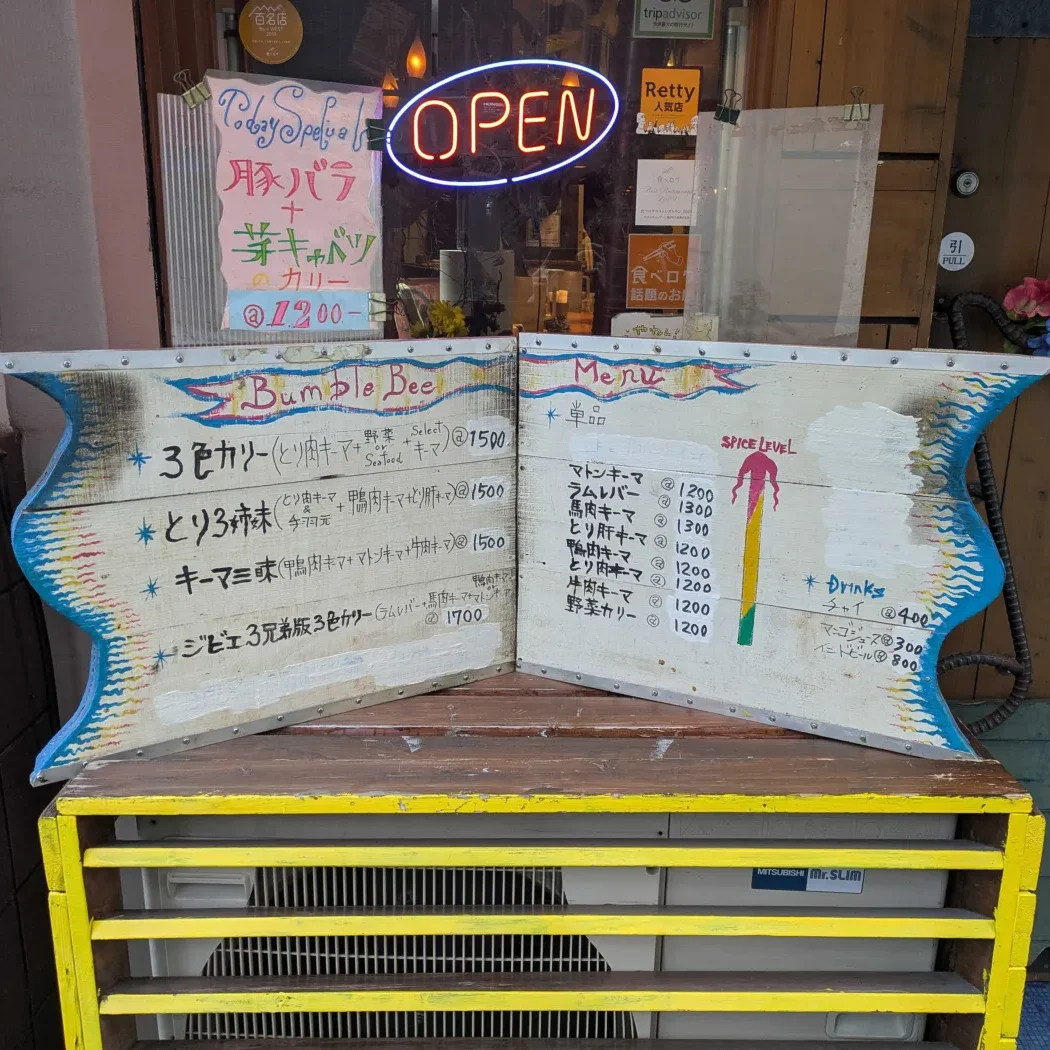 百名店
tripadvisor
Today Spelual
豚バラ
+
芽キャベツ
のカリー
@1200-
OPEN
Retty
人気店
食べログ
引
PULL
食べロ
話題のお
Bumble Bee
* 3色カリー(とり肉キーマ+野菜 or Seafood+Selectキーマ)@1500.
* とり3姉妹(とり肉キーマ&手羽元+鴨肉キーマ+とり肝キーマ)@1500
* キーマ三昧(鴨肉キーマ+マトンキーマ+牛肉キーマ)@1500
* ジビエ3兄弟版3色カリー(ラムレバー+馬肉キーマ+マトンキーマ
鴨肉キーマ
@1700
Menu
* 単品
マトンキーマ @1200
ラムレバー @1300
馬肉キーマ @1300
とり肝キーマ @1200
鴨肉キーマ @1200
とり肉キーマ @1200
牛肉キーマ @1200
野菜カリー @1200
SPICE LEVEL
* Drinks
チャイ @400
マンゴジュース@300
インドビール@800
MITSUBISHI Mr.SLIM